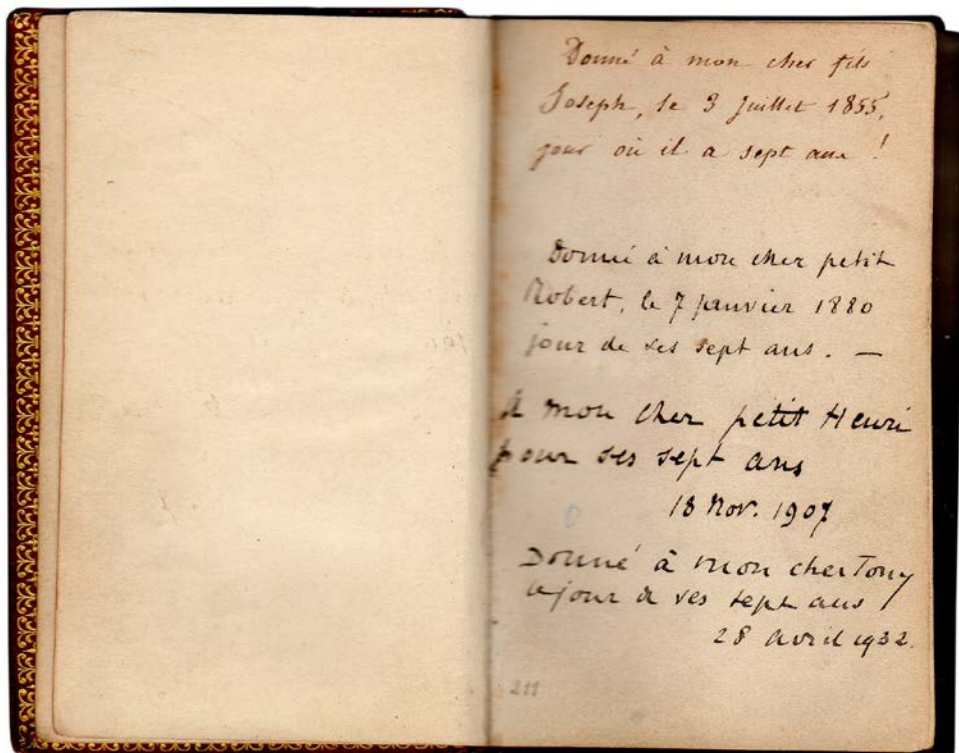 Donné à mon cher fils
Joseph, le 3 Juillet 1855,
jour où il a sept ans !
Donné à mon cher petit
Robert, le 7 janvier 1880
jour de ses sept ans. —
A mon cher petit Henri
pour ses sept ans
18 Nov. 1907
Donné à mon cher Tony
le jour de ses sept ans
28 avril 1932.
211